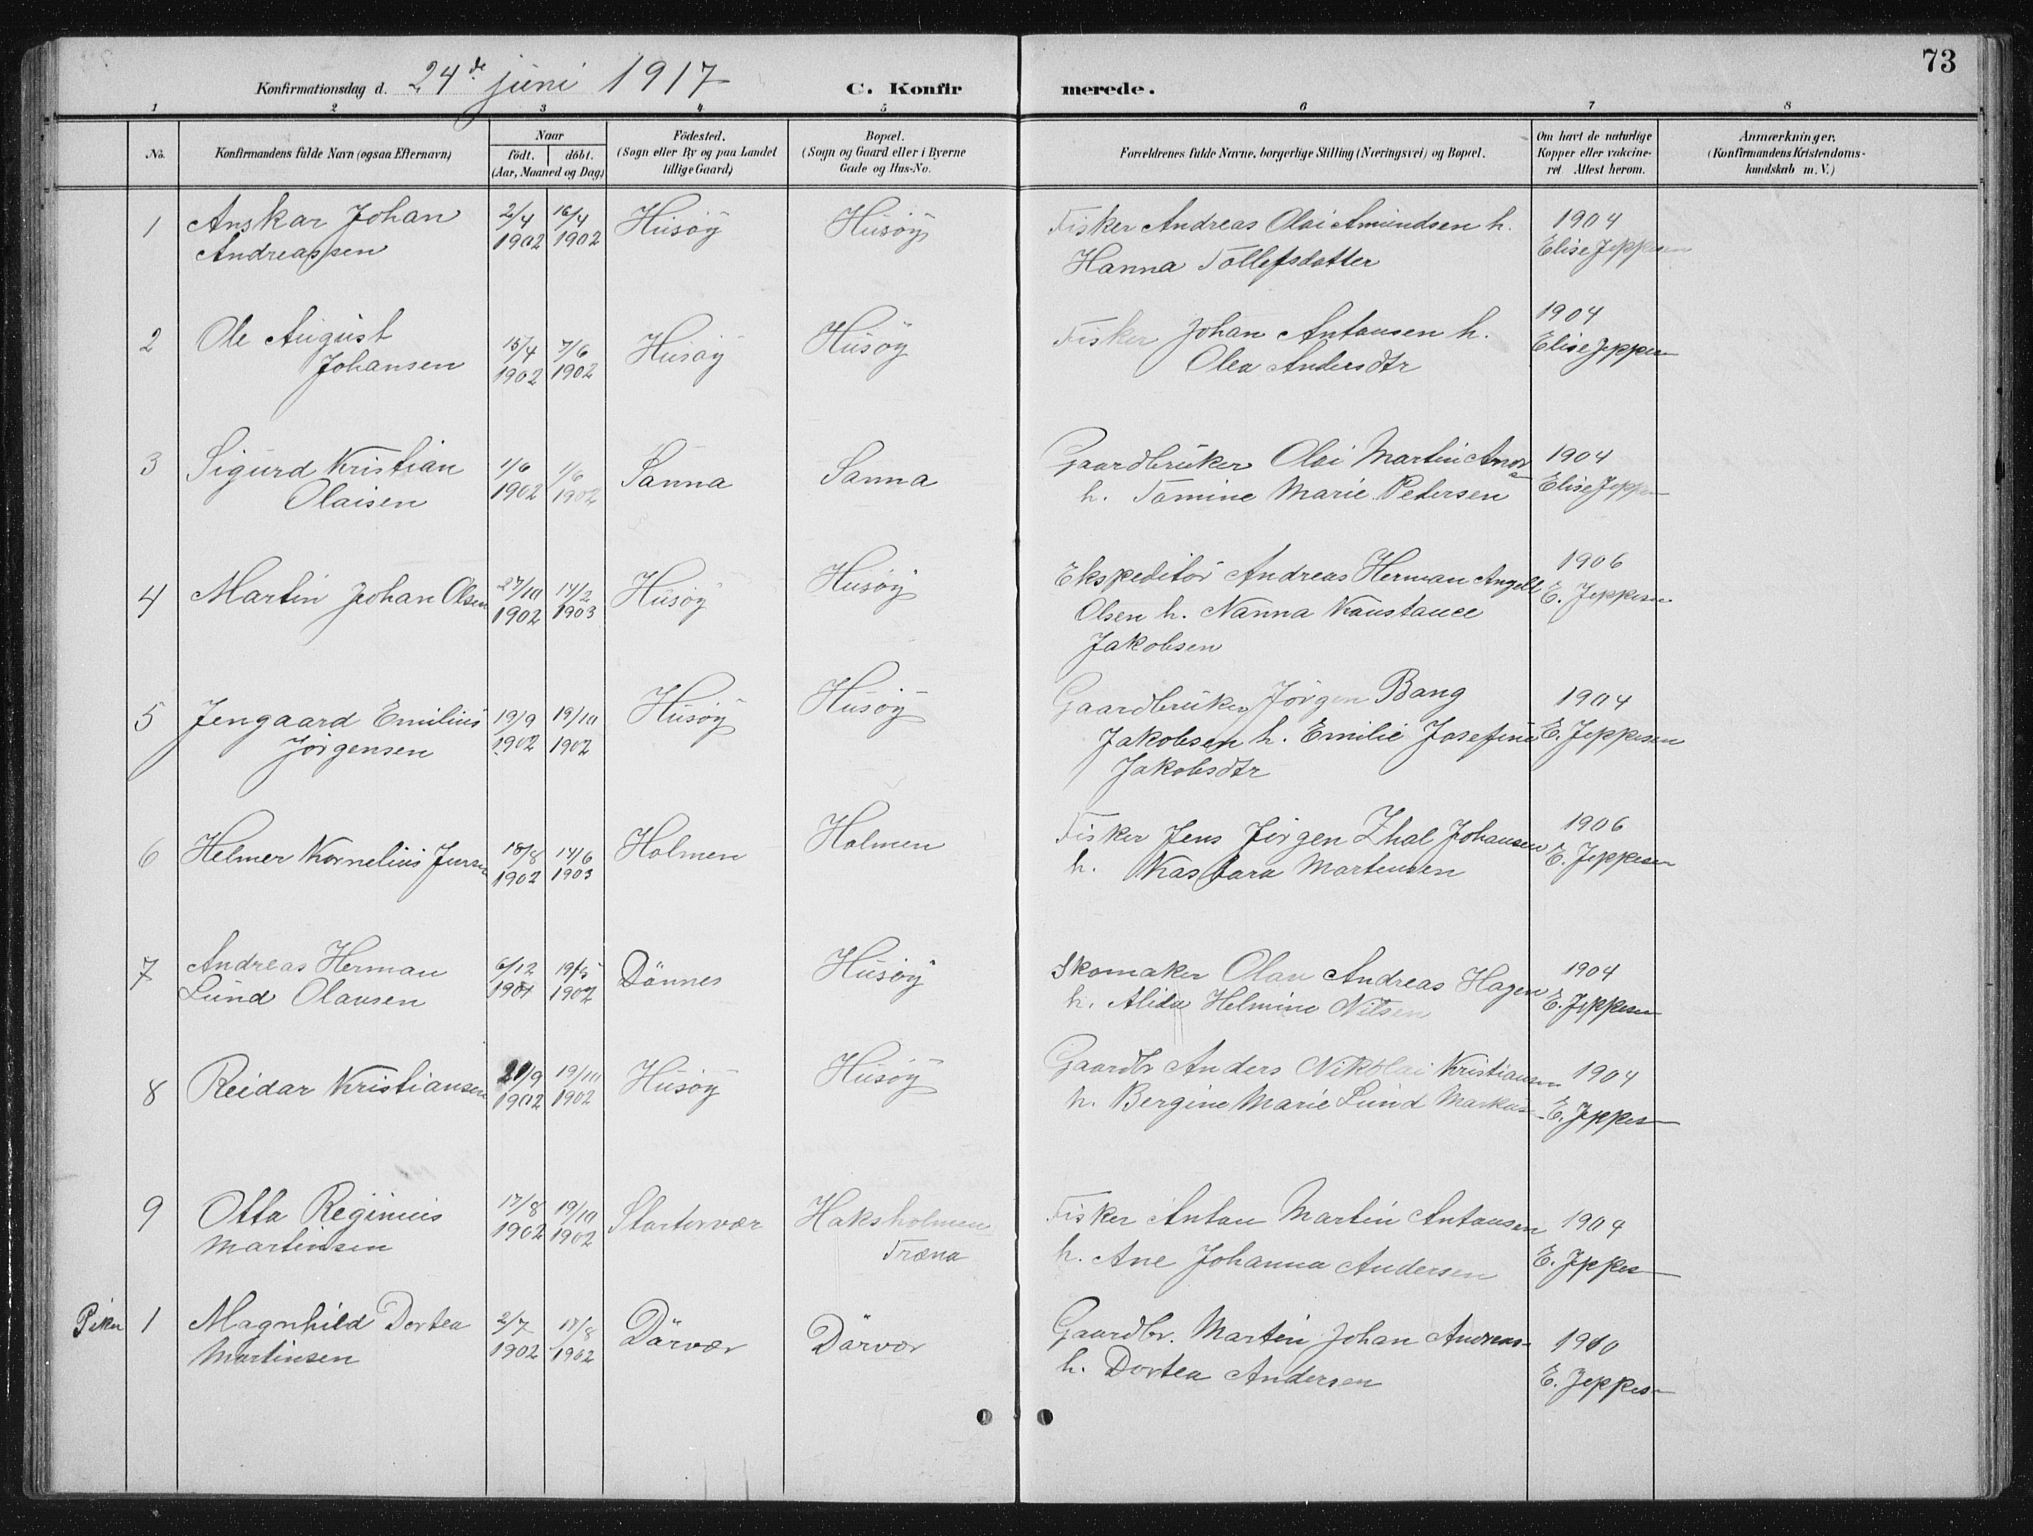 73
Konfirmationsdag d. 24de juni 1917 C. Konfirmerede.
1 2 3 4 5 6 7 8
No. Konfirmandens fulde Navn (ogsaa Efternavn) Naar födt. döbt. (Aar, Maaned og Dag) Födested. (Sogn eller By og paa Landet tillige Gaard) Bopæl. (Sogn og Gaard eller i Byerne Gade og Hus-No. Forældrenes fulde Navne, borgerlige Stilling (Næringsvei) og Bopæl. Om havt de naturlige Kopper eller vakcineret Attest herom. Anmærkninger. (Konfirmandens Kristendomskundskab m. V.)
1 Anskar Johan 2/4 16/4 Husöy Husöy Fisker Andreas Olai Amundsen h. 1904
Andreassen 1902 1902 Hanna Tollefsdatter Elise Jeppesen
2 Ole August 15/4 7/6 Husöy Husöy Fisker Johan Antonsen h. 1904
Johansen 1902 1902 Olea Andersdtr Elise Jeppesen
3 Sigurd Kristian 1/6 1/6 Sanna Sanna Gaardbruker Olai Martin 1904
Olaisen 1902 1902 h. Tomine Marie Petersen Elise Jeppesen
4 Martin Johan Olsen 27/10 14/2 Husöy Husöy Ekspeditör Andreas Herman Angell 1906
1902 1903 Olsen h. Nanna Konstance E. Jeppesen
Jakobsen
5 Jengaard Emilius 19/9 19/10 Husöy Husöy Gaardbruker Jörgen Bang 1904
Jörgensen 1902 1902 Jakobsen h. Emilie Josefine E. Jeppesen
Jakobsdtr
6 Helmer Kornelius 18/8 14/6 Holmen Holmen Fisker Jens Jörgen Zhal Johansen 1906
1902 1903 h. Kasbara Martensen E. Jeppesen
7 Andreas Herman 6/12 19/5 Dönnes Husöy Skomaker Olav Andreas Hagen 1904
Lund Olausen 1901 1902 h. Alida Helmine Nilsen E. Jeppesen
8 Reidar Kristiansen 21/9 19/10 Husöy Husöy Gaardbr Anders Nikolai Kristiansen 1904
1902 1902 h. Bergine Marie Lund E. Jeppes
9 Otto Reginius 17/8 19/10 Haksholmen Fisker Anton Martin Antonsen 1904
Martinsen 1902 1902 Træna h. Ane Johanna Andersen E. Jeppes
Piker 1 Magnhild Dortea 2/7 17/8 Dörvær Dörvær Gaardbr. Martin Johan Andreas- 1910
Martinsen 1902 1902 h. Dortea Andersen E. Jeppes